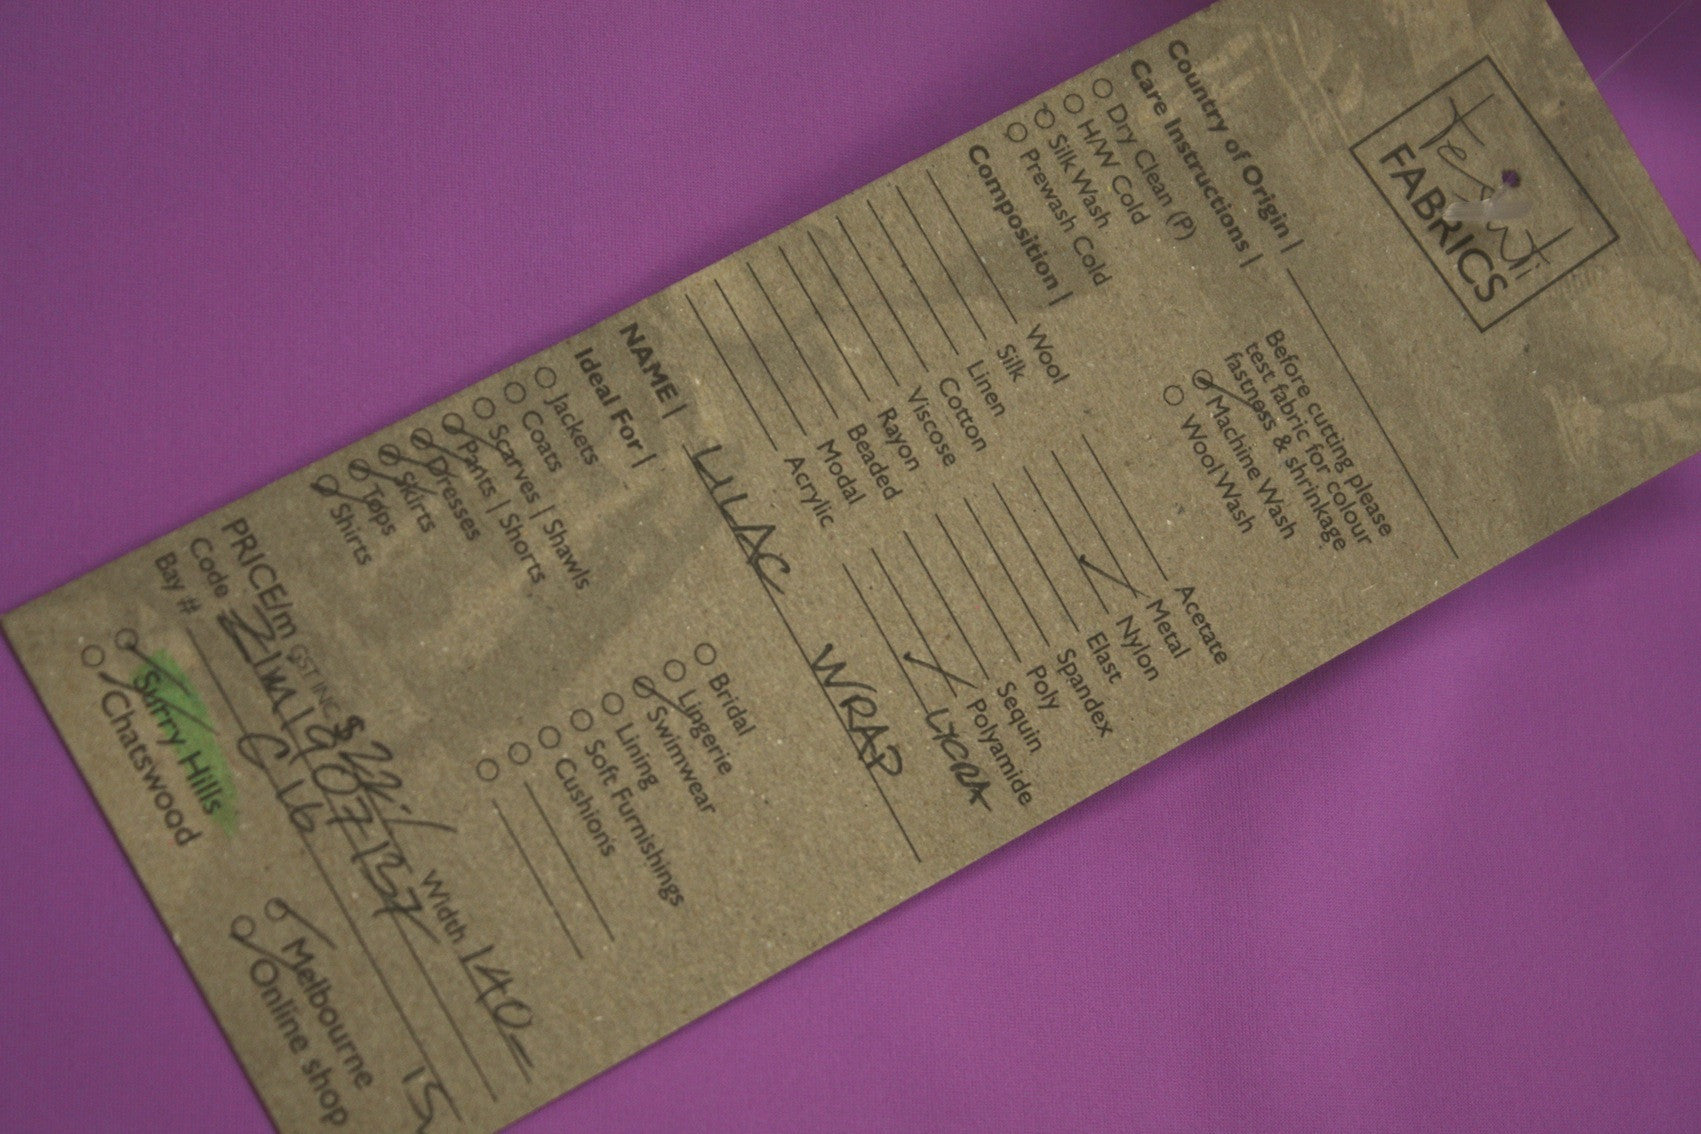 Tessuti
FABRICS
Country of Origin |
Care Instructions |
Dry Clean (P)
H/W Cold
Silk Wash
Prewash Cold
Before cutting please
test fabric for colour
fastness & shrinkage
Machine Wash
Wool Wash
Composition |
Wool
Silk
Linen
Cotton
Viscose
Rayon
Beaded
Modal
Acrylic
Acetate
Metal
Nylon
Elast
Spandex
Poly
Sequin
Polyamide
LYCRA
NAME | LILAC WRAP
Ideal For |
Jackets
Coats
Scarves | Shawls
Pants | Shorts
Dresses
Skirts
Tops
Shirts
Bridal
Lingerie
Swimwear
Lining
Soft Furnishings
Cushions
PRICE/m GST INC Width 140
Code
Bay # G 16 15
Surry Hills
Chatswood
Melbourne
Online shop